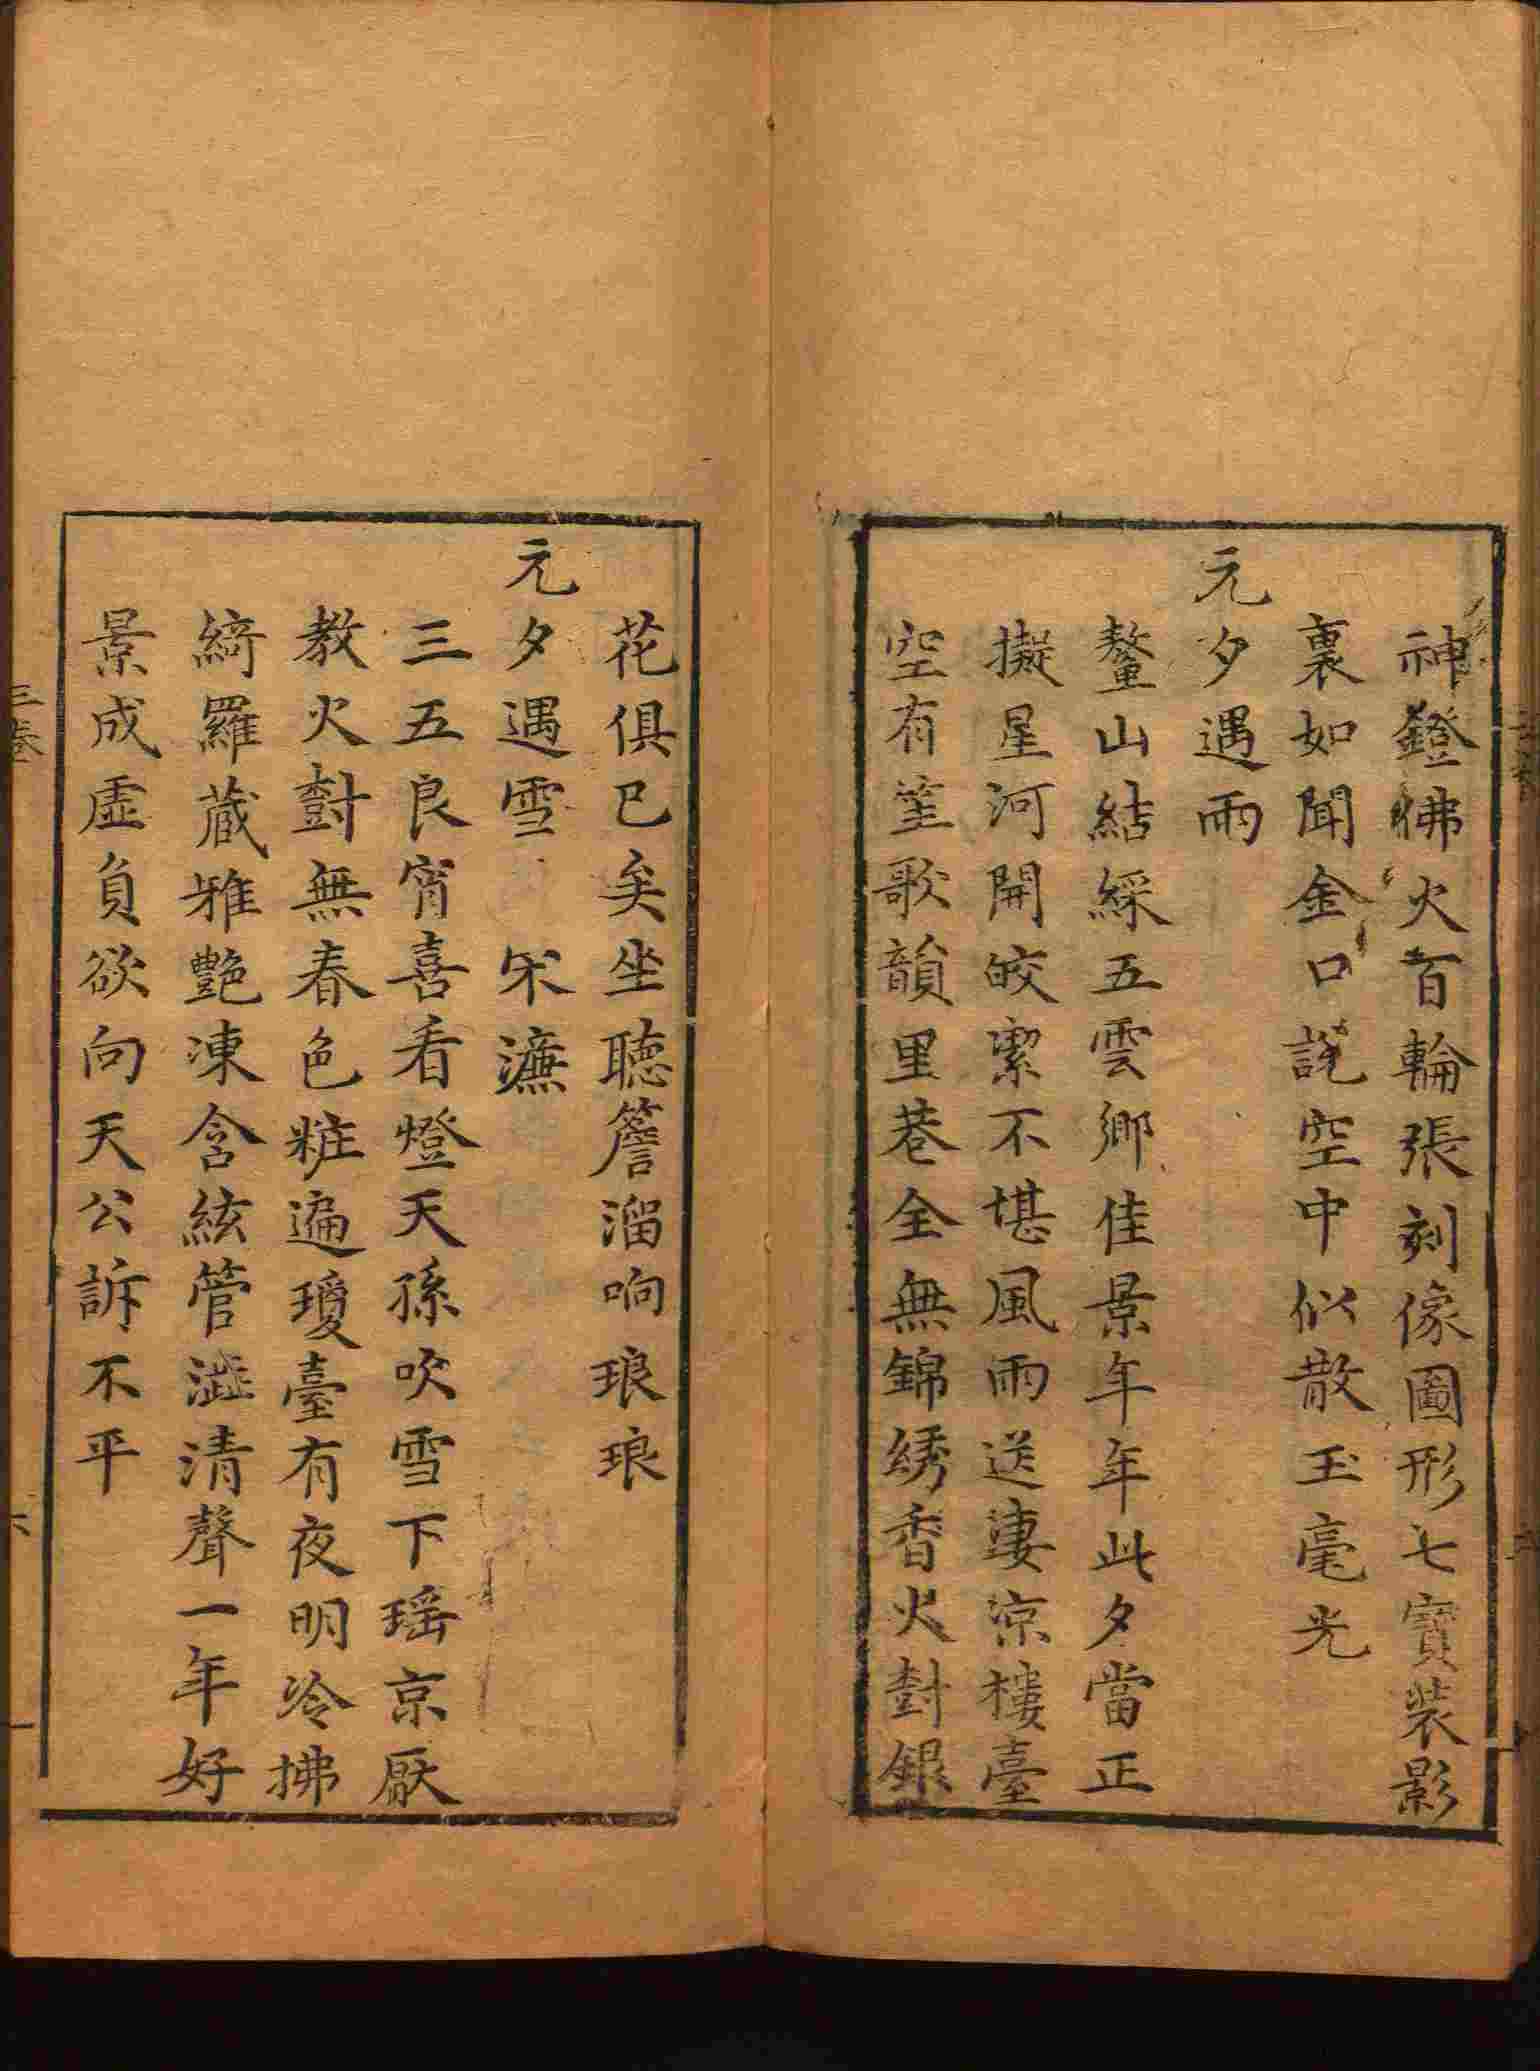 神鐙佛火百輪張刻像圖形七寶裝影
裏如聞金口說空中似散玉毫光
元夕遇雨
鰲山結綵五雲鄉佳景年年此夕當正
擬星河開皎潔不堪風雨送淒涼樓臺
空有笙歌韻里巷全無錦綉香火尌銀
花俱已矣坐聽簷溜响琅琅
元夕遇雪 宋濂
三五良宵喜看燈天孫吹雪下瑶京厭
教火尌無春色粧遍瓊臺有夜明冷拂
綺羅蔵雅艶凍含絃管澁清聲一年好
景成虛負欲向天公訴不平
三卷
六